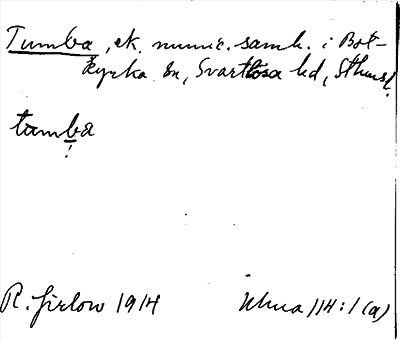 Tumba, ek. munic. samh. i Bot-
kyrka sn, Svartlösa hd, Sthms l.
tumba
R. Jirlow 1914 114:1 (a)